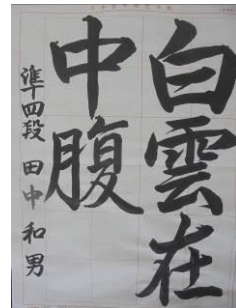 白雲在
中腹
準四段 田中和男